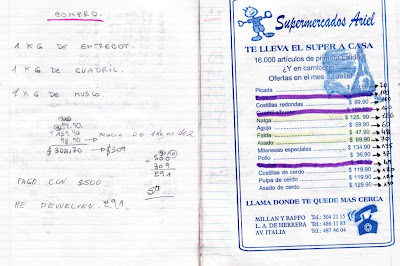 COMPRO.
1 KG DE ENTRECOT.
1 KG DE CUADRIL.
1 KG DE MUSLO.
99.90
159.90
48.90
$308,70 → $309
- 500
309
291
PAGO CON $500
ME DEVUELVEN 291
Supermercados Ariel
TE LLEVA EL SUPER A CASA
16.000 artículos de primera calidad
¿Y en carnicería?
Ofertas en el mes de
Picada
Costillas redondas $ 99.90
Nalga $ 125.90
Aguja $
Falda $ 47.90
Asado $ 69.90
Milanesas especiales $ 134.90
Pollo $ 36.90
Costillas de cerdo $ 119.90
Pulpa de cerdo $ 119.90
Asado de cerdo $ 129.90
LLAMA DONDE TE QUEDE MAS CERCA
MILLAN Y RAFFO Tel.: 304 21 15
L. A. DE HERRERA Tel.: 486 11 83
AV. ITALIA Tel.: 487 46 04